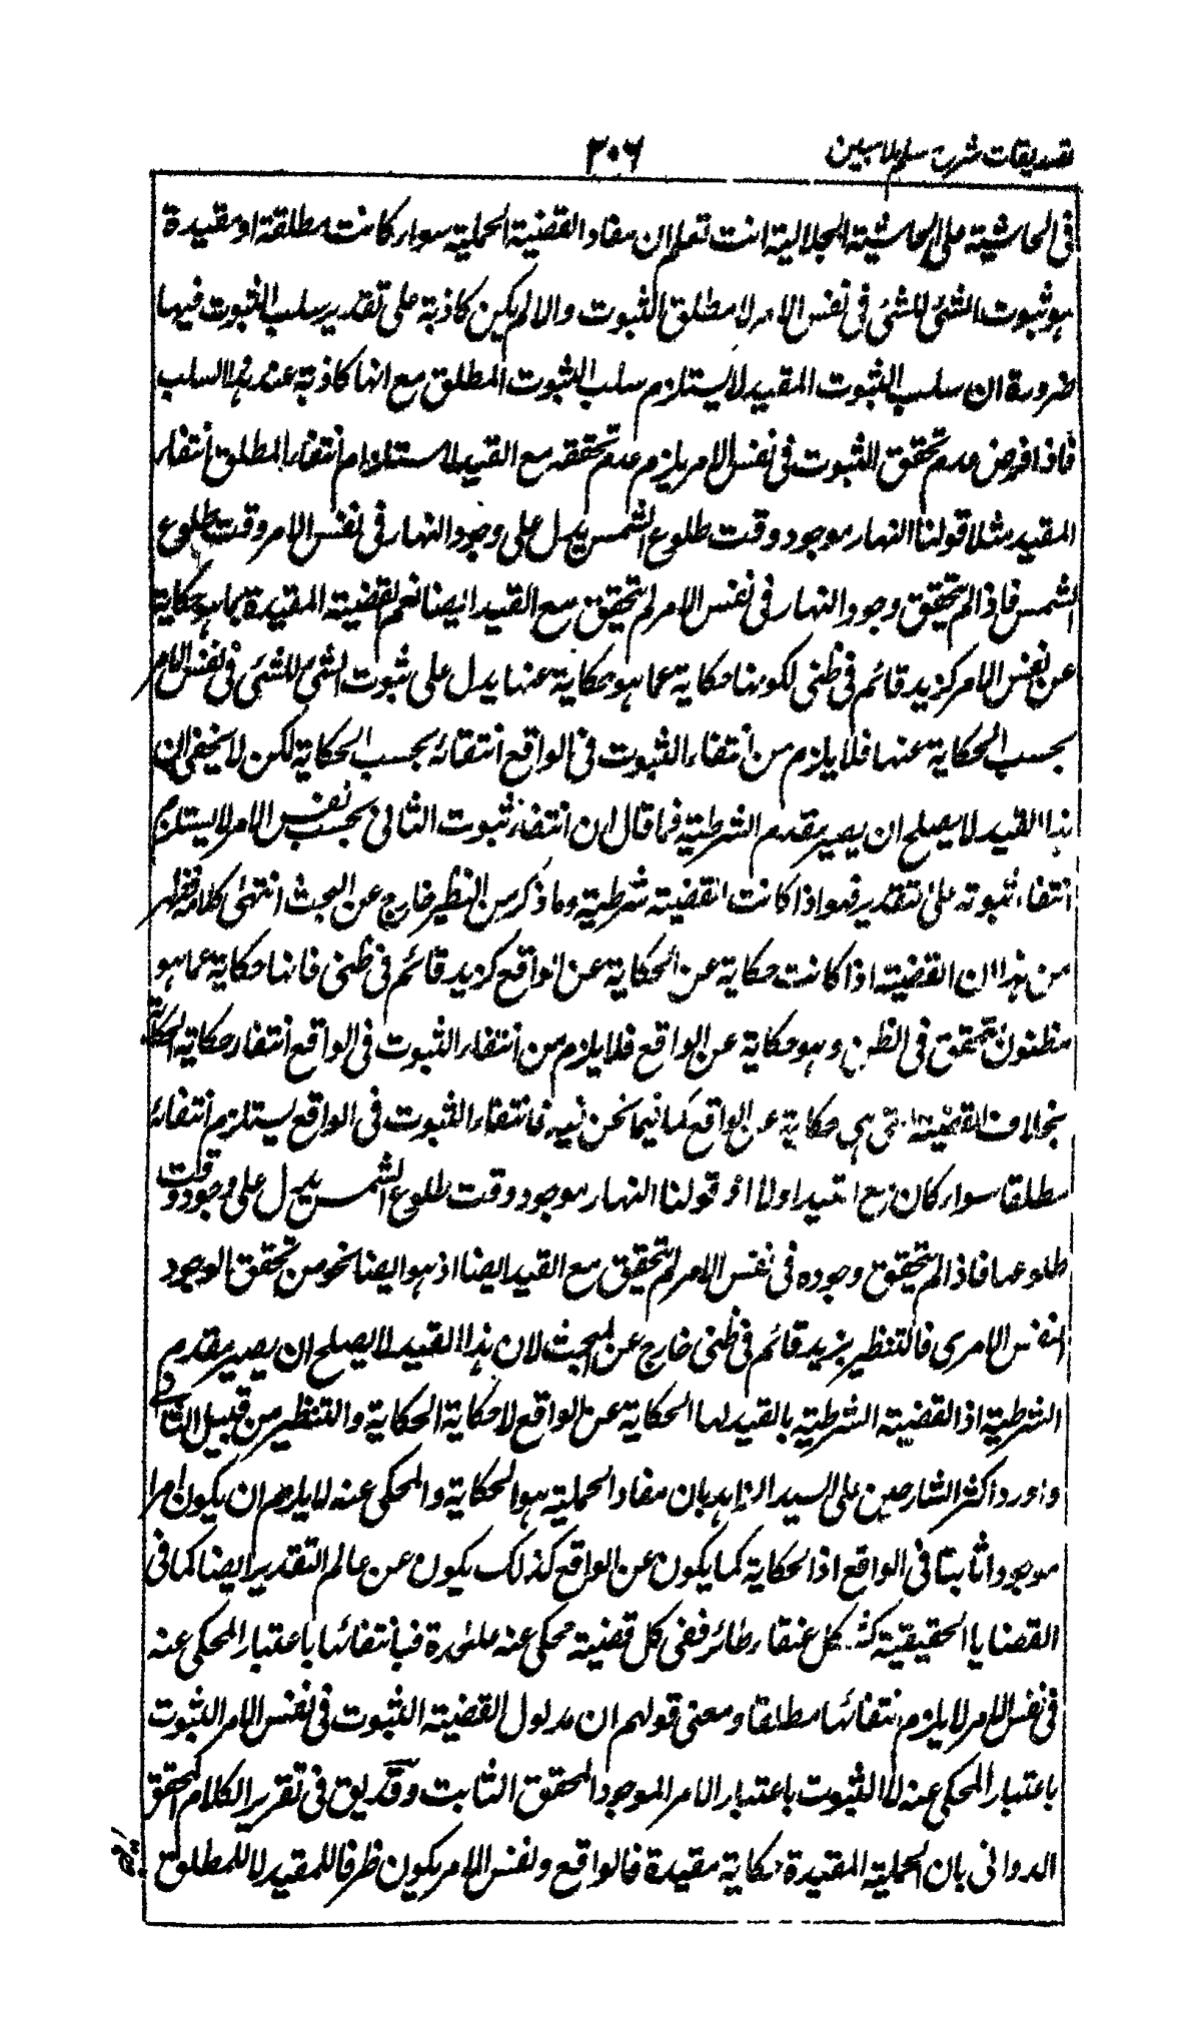 تصديقات شرح سلم ملا مبين
٣٠٦
فى الحاشية على الحاشية الجلالية انت تعلم ان مفاد القضية الحملية سواء كانت مطلقة او مقيدة
هو ثبوت الشئ للشئ فى نفس الامر لا مطلق الثبوت والا لم يكن كاذبة على تقدير سلب الثبوت فيها
ضرورة ان سلب الثبوت المقيد لا يستلزم سلب الثبوت المطلق مع انها كاذبة عند هذا السلب
فاذا فرض عدم تحقق الثبوت فى نفس الامر يلزم عدم تحققه مع القيد لاستلزام انتفاء المطلق انتفاء
المقيد مثلا قولنا النهار موجود وقت طلوع الشمس يدل على وجود النهار فى نفس الامر وقت طلوع
الشمس فاذا لم تحقق وجود النهار فى نفس الامر لم تحقق مع القيد ايضا نعم القضية المقيدة بما هو حكاية
عن نفس الامر كزيد قائم فى ظنى لكونها حكاية عما هو حكاية عنها يدل على ثبوت الشئ للشئ فى نفس الامر
بحسب الحكاية عنها فلا يلزم من انتفاء الثبوت فى الواقع انتفائه بحسب الحكاية لكن لا يخفى ان
هذا القيد لا يصلح ان يصير مقدم الشرطية فما قال ان انتفاء ثبوت التالى بحسب نفس الامر لا يستلزم
انتفاء ثبوته على تقدير فهو اذا كانت القضية شرطية وما ذكر من النظير خارج عن البحث انتهى كلامه فظهر
من هذا ان القضية اذا كانت حكاية عن الحكاية عن الواقع كزيد قائم فى ظنى فانها حكاية عما هو
مظنون متحقق فى الظن وهو حكاية عن الواقع فلا يلزم من انتفاء الثبوت فى الواقع انتفاء حكاية الحكاية
بخلاف القضية التى هى حكاية عن الواقع كما فيما نحن فيه فانتفاء الثبوت فى الواقع يستلزم انتفائه
مطلقا سواء كان مع القيد اولا اذ قولنا النهار موجود وقت طلوع الشمس يدل على وجوده وقت
طلوعها فاذا لم تحقق وجوده فى نفس الامر لم تحقق مع القيد ايضا اذ هو ايضا نحو من تحقق الوجود
النفس الامرى فالتنظير بزيد قائم فى ظنى خارج عن المبحث لان هذا القيد لا يصلح ان يصير مقدم
الشرطية اذ القضية الشرطية بالقيد لها الحكاية عن الواقع لا حكاية الحكاية والتنظير من قبيل الثانى
واورد اكثر الشارحين على السيد الزاهد بان مفاد الحملية هو الحكاية والمحكى عنه لا يلزم ان يكون امرا
موجودا ثابتا فى الواقع اذ الحكاية كما يكون عن الواقع كذلك يكون عن عالم التقدير ايضا كما فى
القضايا الحقيقية كـ كل عنقاء طائر ففى كل قضية محكى عنه على حدة فبانتفائها باعتبار المحكى عنه
فى نفس الامر لا يلزم انتفائها مطلقا ومعنى قولهم ان مدلول القضية الثبوت فى نفس الامر الثبوت
باعتبار المحكى عنه لا الثبوت باعتبار الامر الموجود المحقق الثابت وقد يق فى تقرير الكلام المحقق
الدوانى بان الحملية المقيدة حكاية مقيدة فالواقع ونفس الامر يكون ظرفا للمقيد لا للمطلق